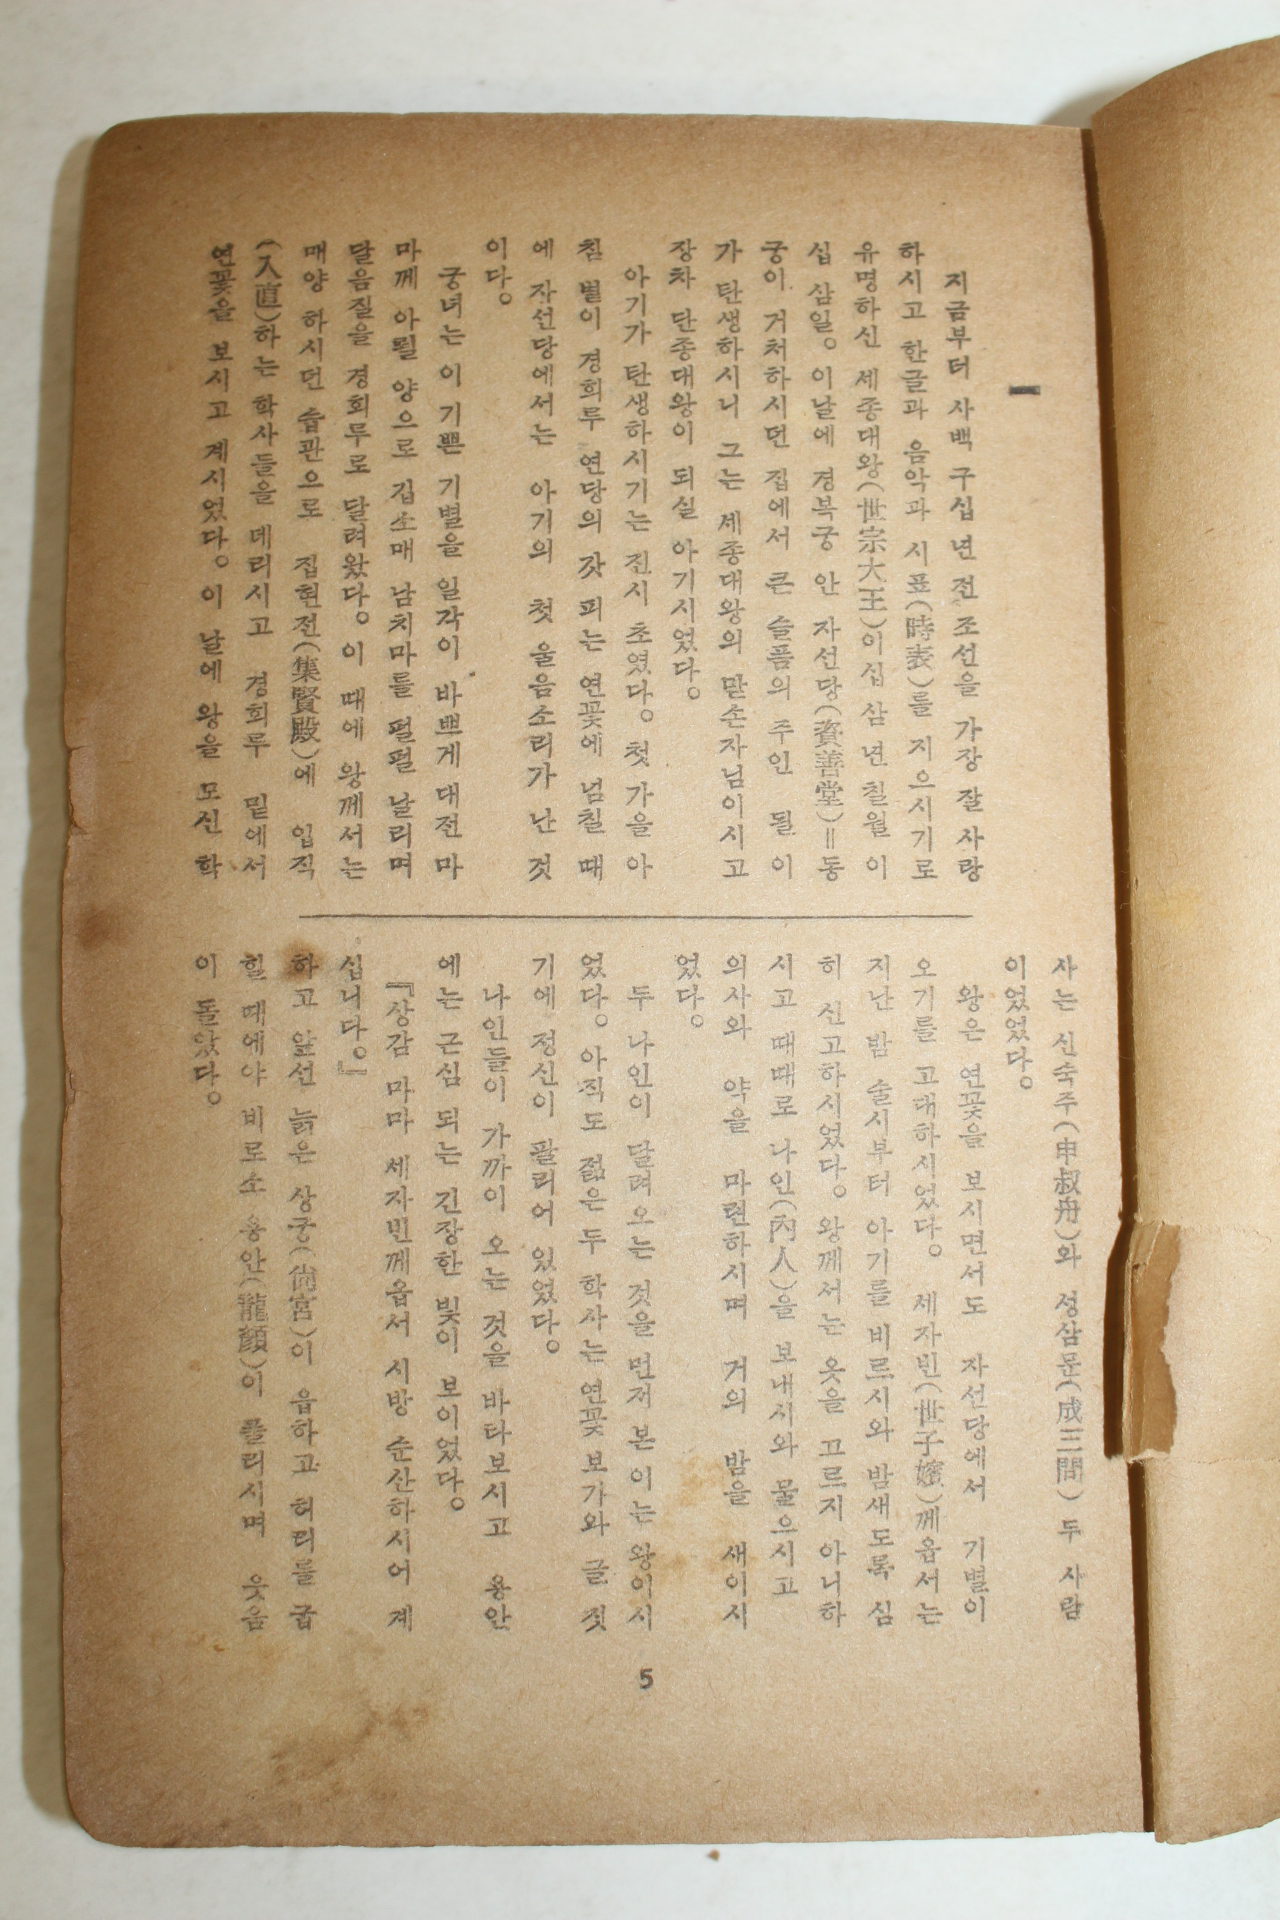 一
지금부터 사백 구십 년 전 조선을 가장 잘 사랑
하시고 한글과 음악과 시표(時表)를 지으시기로
유명하신 세종대왕(世宗大王)이십 삼 년 칠월 이
십 삼일。 이날에 경복궁 안 자선당(資善堂)=동
궁이 거처하시던 집에서 큰 슬픔의 주인 될 이
가 탄생하시니 그는 세종대왕의 맏손자님이시고
장차 단종대왕이 되실 아기시었다。
아기가 탄생하시기는 진시 초였다。 첫 가을 아
침 볕이 경회루 연당의 갓 피는 연꽃에 넘칠 때
에 자선당에서는 아기의 첫 울음소리가 난 것
이다。
궁녀는 이 기쁜 기별을 일각이 바쁘게 대전 마
마께 아뢸 양으로 깁소매 남치마를 펄펄 날리며
달음질을 경회루로 달려왔다。 이 때에 왕께서는
매양 하시던 습관으로 집현전(集賢殿)에 입직
(入直)하는 학사들을 데리시고 경회루 밑에서
연꽃을 보시고 계시었다。 이 날에 왕을 모신 학
사는 신숙주(申叔舟)와 성삼문(成三問) 두 사람
이었었다。
왕은 연꽃을 보시면서도 자선당에서 기별이
오기를 고대하시었다。 세자빈(世子嬪)께옵서는
지난 밤 술시부터 아기를 비르시와 밤새도록 심
히 신고하시었다。 왕께서는 옷을 끄르지 아니하
시고 때때로 나인(內人)을 보내시와 물으시고
의사와 약을 마련하시며 거의 밤을 새이시
었다。
두 나인이 달려 오는 것을 먼저 본 이는 왕이시
었다。 아직도 젊은 두 학사는 연꽃 보가와 글 짓
기에 정신이 팔리어 있었다。
나인들이 가까이 오는 것을 바타보시고 용안
에는 근심 되는 긴장한 빛이 보이었다。
『상감 마마 세자빈께옵서 시방 순산하시어 계
십니다。』
하고 앞선 늙은 상궁(尙宮)이 읍하고 허리를 굽
힐 때에야 비로소 용안(龍顔)이 풀리시며 웃음
이 돌았다。
5